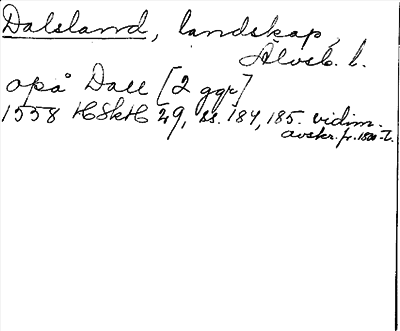 Dalsland, landskap,
Älvsb. l.
opå Dall [2 ggr]
1558 HSkH 29, ss. 184, 185. vidim.
avskr. fr. 1500-t.